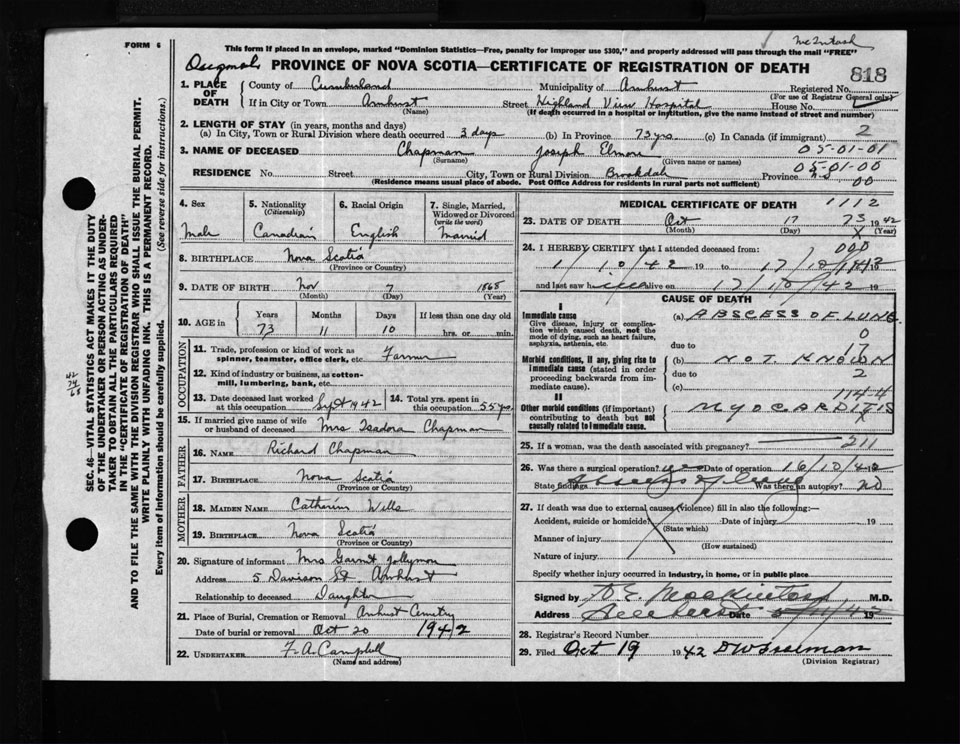 FORM 6
McIntosh
This form if placed in an envelope, marked "Dominion Statistics—Free, penalty for improper use $300," and properly addressed will pass through the mail "FREE"
PROVINCE OF NOVA SCOTIA—CERTIFICATE OF REGISTRATION OF DEATH
818
1. PLACE OF DEATH
County of Cumberland Municipality of Amherst Registered No.
(For use of Registrar General only)
If in City or Town Amherst Street Highland View Hospital House No.
(Name) (If death occurred in a hospital or institution, give the name instead of street and number)
2. LENGTH OF STAY (in years, months and days) 2
(a) In City, Town or Rural Division where death occurred 3 days (b) In Province 73 yrs (c) In Canada (if immigrant)
05-01-01
3. NAME OF DECEASED Chapman Joseph Elmore
(Surname) (Given name or names)
05-01-00
RESIDENCE No. Street City, Town or Rural Division Brookdale Province N.S
(Residence means usual place of abode. Post Office Address for residents in rural parts not sufficient) 00
4. Sex
Male
5. Nationality (Citizenship)
Canadian
6. Racial Origin
English
7. Single, Married, Widowed or Divorced (write the word)
Married
8. BIRTHPLACE Nova Scotia
(Province or Country)
9. DATE OF BIRTH Nov 7 1868
(Month) (Day) (Year)
10. AGE in Years Months Days If less than one day old
73 11 10 hrs. or min.
OCCUPATION
11. Trade, profession or kind of work as spinner, teamster, office clerk, etc. Farmer
12. Kind of industry or business, as cotton-mill, lumbering, bank, etc.
13. Date deceased last worked at this occupation Sept 1942
14. Total yrs. spent in this occupation 55 yrs
15. If married give name of wife or husband of deceased Mrs Isadora Chapman
FATHER
16. NAME Richard Chapman
17. BIRTHPLACE Nova Scotia
(Province or Country)
MOTHER
18. MAIDEN NAME Catherine Wells
19. BIRTHPLACE Nova Scotia
(Province or Country)
20. Signature of informant Mrs Garnet Jollymore
Address 5 Davison St. Amherst
Relationship to deceased Daughter
21. Place of Burial, Cremation or Removal Amherst Cemetry
Date of burial or removal Oct 20 1942
22. UNDERTAKER F. A. Campbell
(Name and address)
MEDICAL CERTIFICATE OF DEATH 1112
23. DATE OF DEATH Oct 17 73 1942
(Month) (Day) X (Year)
24. I HEREBY CERTIFY that I attended deceased from: 000
1/10/42 19 to 17/10/1942 19
and last saw h alive on 17/10/42 19
CAUSE OF DEATH
I
Immediate cause
Give disease, injury or complication which caused death, not the mode of dying, such as heart failure, asphyxia, asthenia, etc.
(a) ABSCESS OF LUNG
0
due to
17
Morbid conditions, if any, giving rise to immediate cause (stated in order proceeding backwards from immediate cause)
(b) NOT KNOWN
due to 2
(c)
114-4
II
Other morbid conditions (if important) contributing to death but not causally related to immediate cause.
MYOCARDITIS
X
25. If a woman, was the death associated with pregnancy? 211
26. Was there a surgical operation? yes Date of operation 16/10/42
State findings Abscess of lung Was there an autopsy? NO
27. If death was due to external causes (violence) fill in also the following:—
Accident, suicide or homicide? Date of injury 19
(State which)
Manner of injury
(How sustained)
Nature of injury
Specify whether injury occurred in industry, in home, or in public place
Signed by M.D.
Address Amherst Date 19
28. Registrar's Record Number
29. Filed Oct 19 1942
(Division Registrar)
SEC. 46—VITAL STATISTICS ACT MAKES IT THE DUTY
OF THE UNDERTAKER OR PERSON ACTING AS UNDER-
TAKER TO OBTAIN ALL THE PARTICULARS REQUIRED
IN THE "CERTIFICATE OF REGISTRATION OF DEATH"
AND TO FILE THE SAME WITH THE DIVISION REGISTRAR WHO SHALL ISSUE THE BURIAL PERMIT.
WRITE PLAINLY WITH UNFADING INK. THIS IS A PERMANENT RECORD.
Every item of information should be carefully supplied. (See reverse side for instructions.)
42
74
68